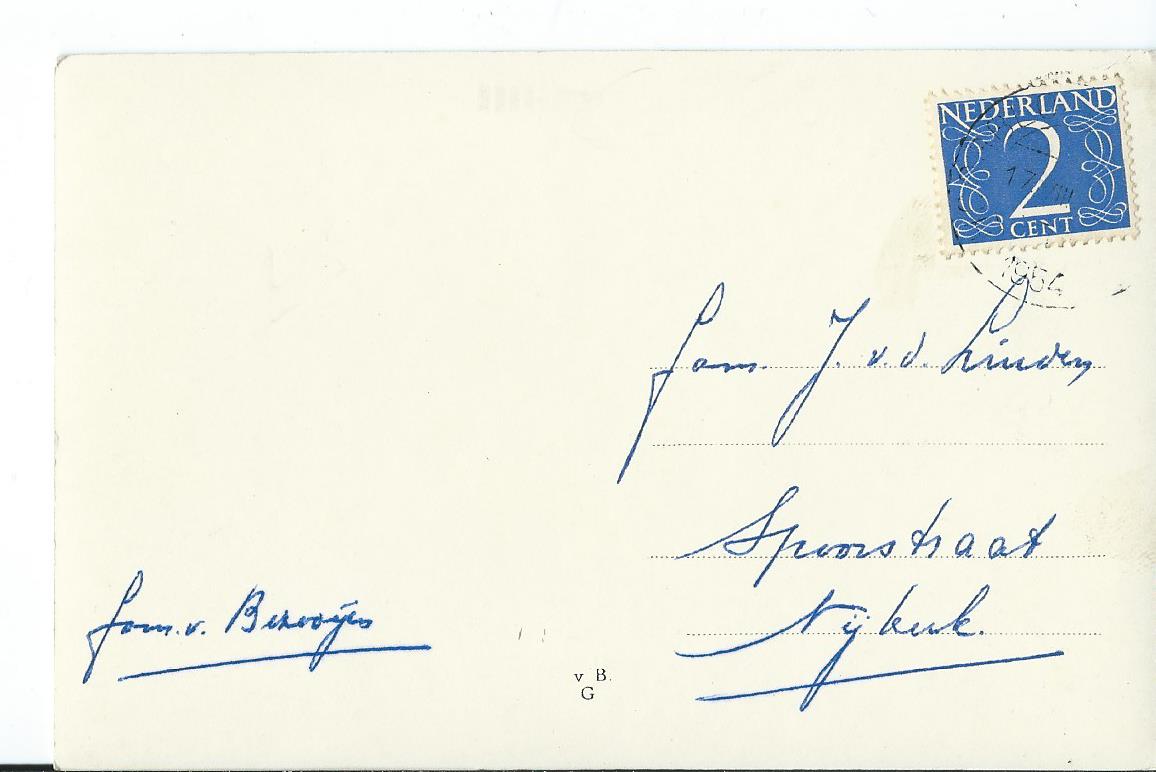 NEDERLAND
2
CENT
17
1954
Fam. J. v. d. Linden
Spoorstraat
Nijkerk.
Fam. v.
v B.
G